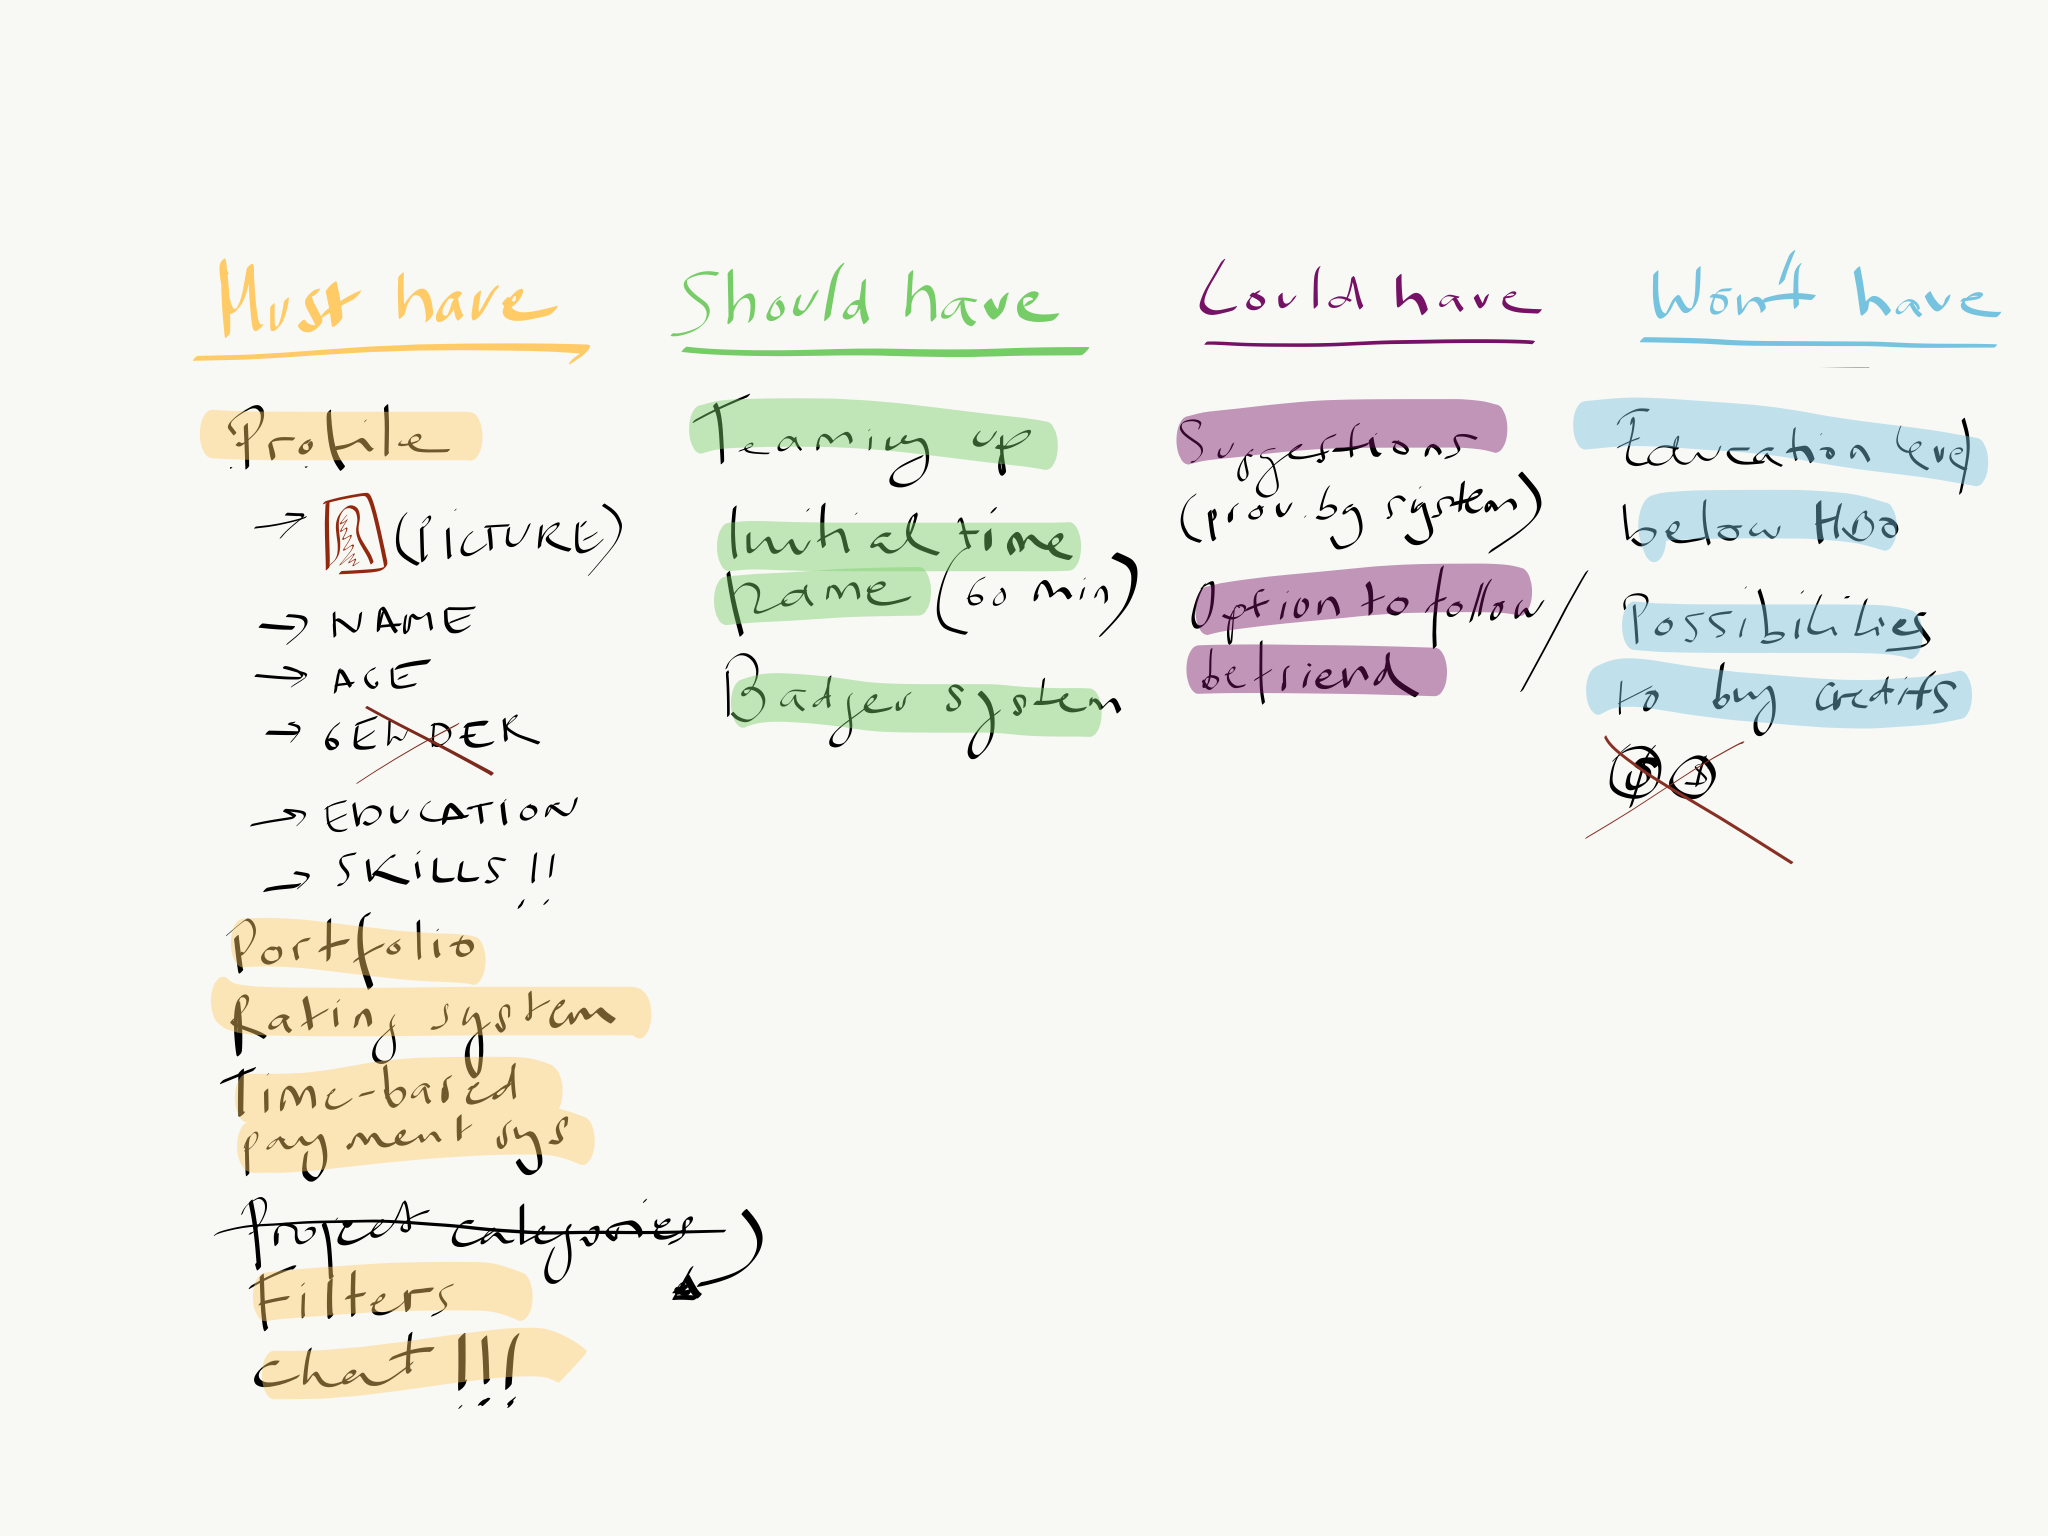 Must have
Profile
→ (PICTURE)
→ NAME
→ AGE
→ GENDER
→ EDUCATION
→ SKILLS !!
Portfolio
Rating system
Time-based
payment sys
Project categories
Filters
chat !!!
Should have
Teaming up
Initial time
frame (60 min)
Badges system
Could have
Suggestions
(prov. by system)
Option to follow /
befriend
Won't have
Education level
below HBO
Possibilities
to buy credits
$ $